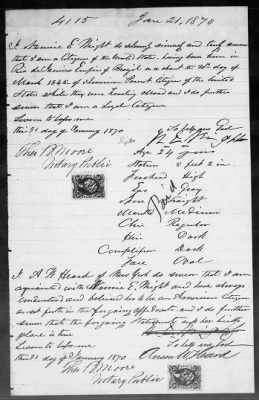 4115 Jan 21, 1870
I Nannie E Wright do solemnly sincerely and truly swear
that I am a Citizen of the United States, being born in
Rio de Janeiro Empire of Brazil on about the day of
March 1846 of American Parents Citizens of the United
States while they were traveling abroad and I do further
swear that I am a loyal Citizen
Sworn to before me
this 21 day of January 1870 So help me God
Thos B Moore
Notary Public
Age 24 years
Stature 5 feet 2 in
Forehead High
Eyes Gray
Nose Straight
Mouth Medium
Chin Regular
Hair Dark
Complexion Dark
Face Oval
Paid
I A W Heard of New York do swear that I am
acquainted with Nannie E Wright and have always
considered and believed her to be an American Citizen
as set forth in the foregoing affidavit, and I do further
swear that the foregoing Statement of her birth
place is true
Sworn to before me So help me God
this 21 day of January 1870
Thos B Moore
Notary Public